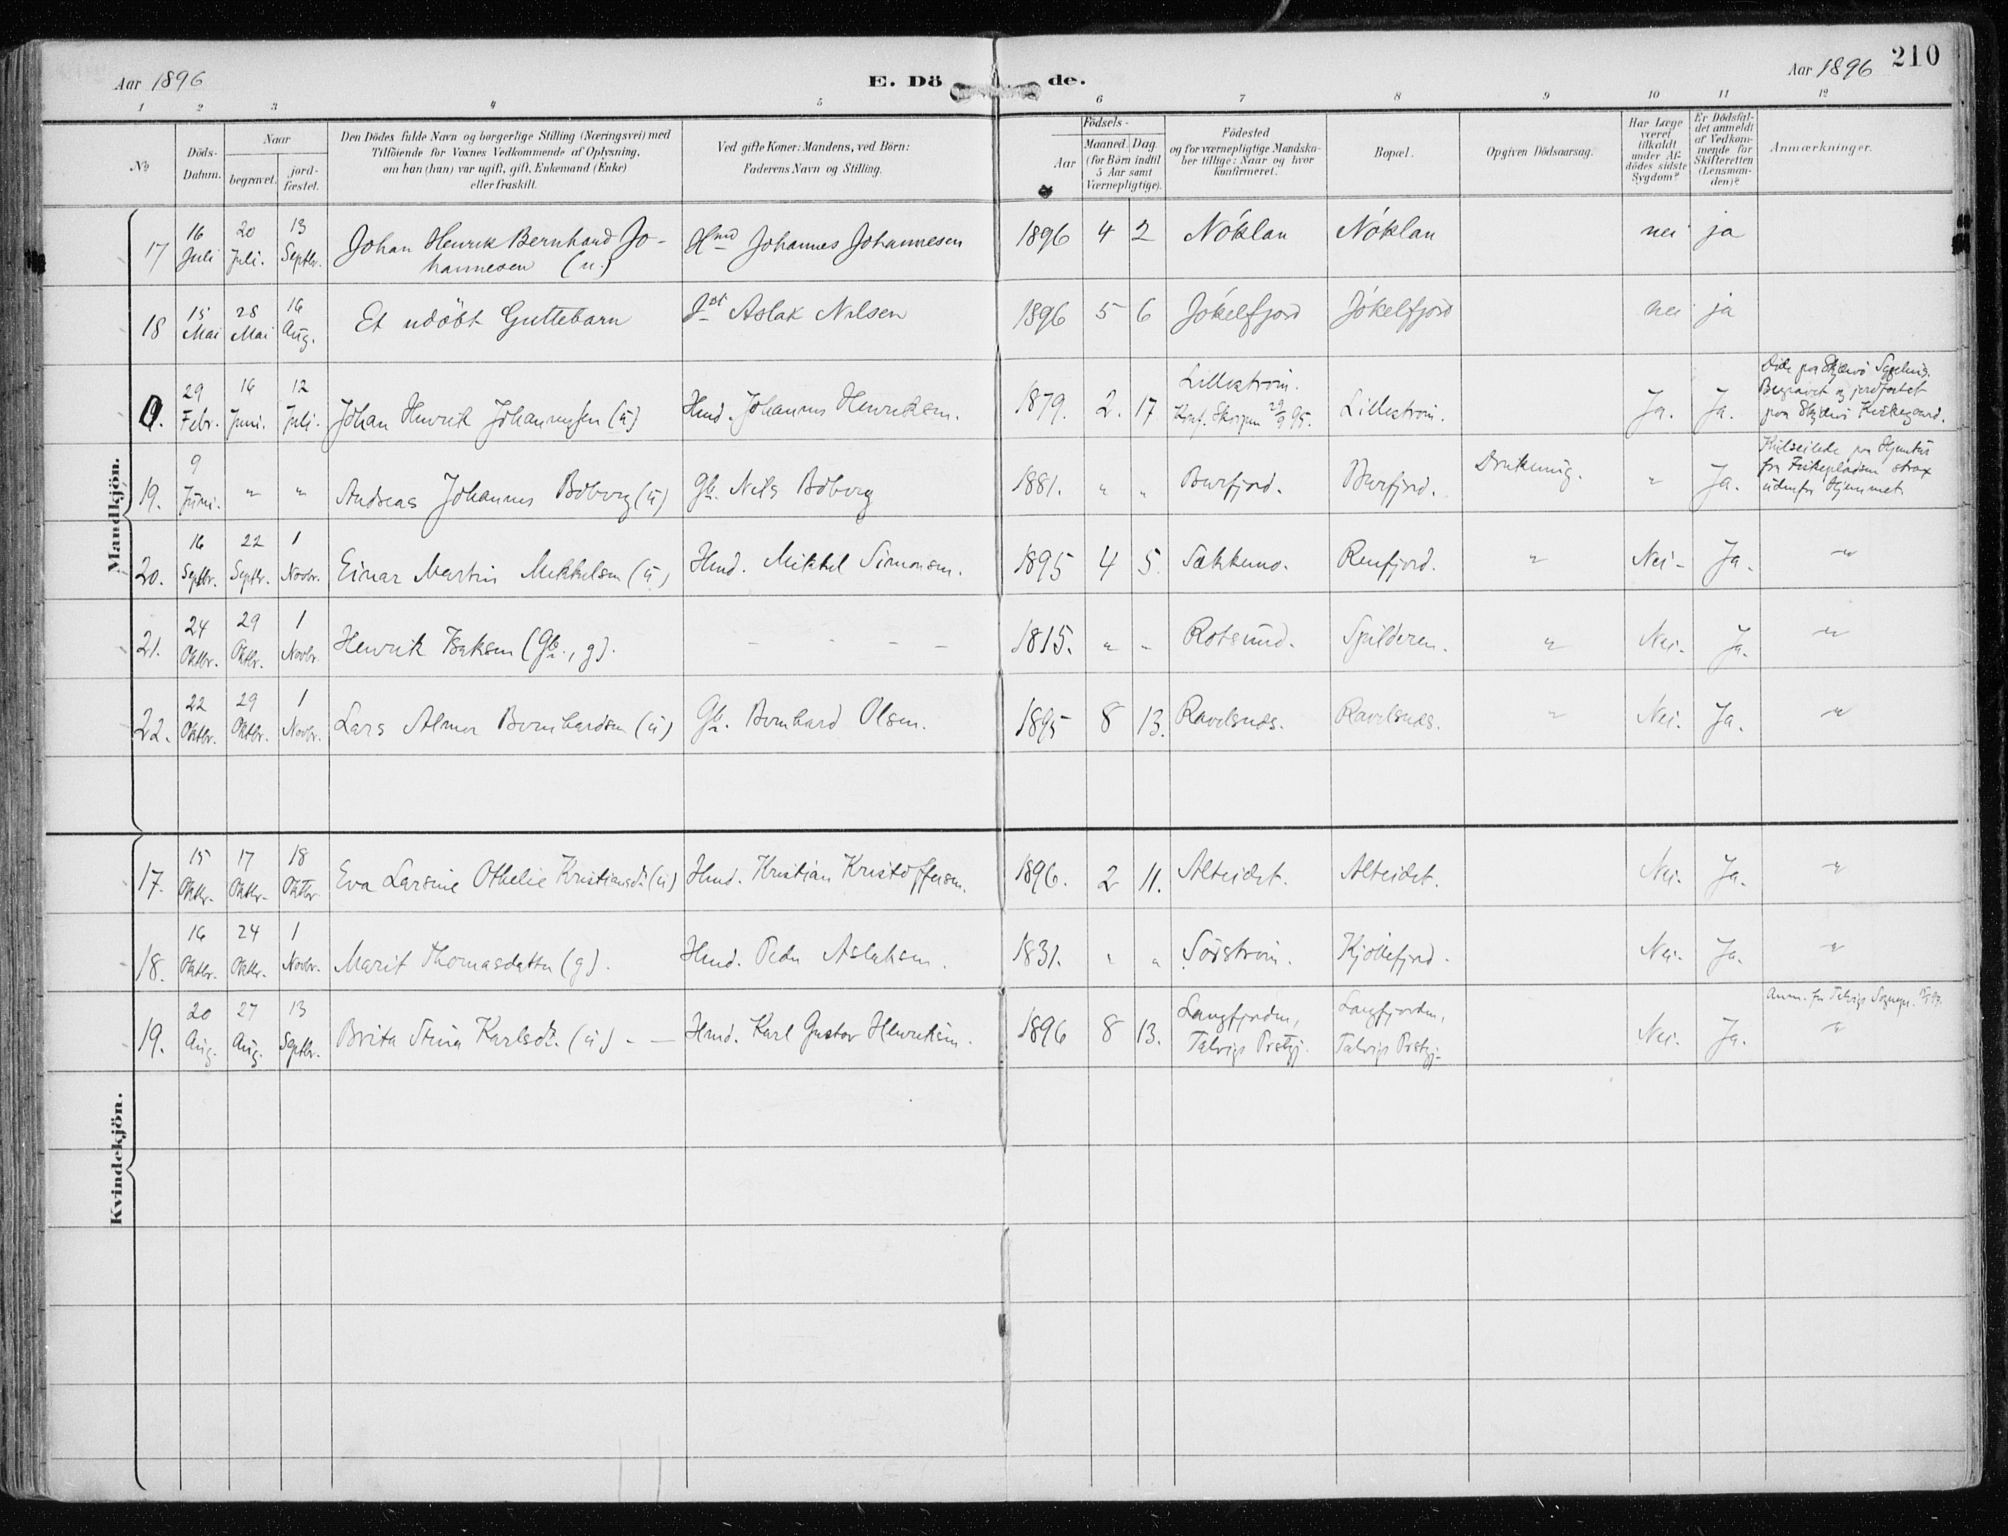 Aar 1896 E. Dö de. Aar 1896 210
1 2 3 4 5 6 7 8 9 10 11 12
No
Döds-Datum.
Naar
begravet.
jord-fæstet.
Den Dödes fulde Navn og borgerlige Stilling (Næringsvei) med
Tilföiende for Voxnes Vedkommende af Oplysning,
om han (hun) var ugift, gift, Enkemand (Enke)
eller fraskilt.
Ved gifte Koner: Mandens, ved Börn:
Faderens Navn og Stilling.
Födsels-
Aar
Maaned. Dag.
(for Börn indtil
5 Aar samt
Værnepligtige).
Födested
og for værnepligtige Mandska-
ber tillige: Naar og hvor
konfirmeret.
Bopæl.
Opgiven Dödsaarsag.
Har Læge
været
tilkaldt
under Af-
dödes sidste
Sygdom?
Er Dödsfal-
det anmeldt
af Vedkom-
mende for
Skifteretten
(Lensman-
den)?
Anmærkninger.
Mandkjön.
17 16 Juli 20 Juli. 13 Septbr. Johan Henrik Bernhard Jo-
hannesen (u.) Hmd Johannes Johannesen 1896 4 2 Nöklan Nöklan nei ja
18 15 Mai 28 Mai 16 Aug. Et udöbt Guttebarn Aslak Nilsen 1896 5 6 Jökelfjord Jökelfjord nei ja
0. 29 Febr. 16 Juni. 12 Juli. Johan Henrik Johannessen (u) Hmd. Johannes Henriksen. 1879. 2. 17 Lilleström.
Konf. 29/9 95. Lilleström. Ja. Ja. Döde paa Skjervö Sygehus.
Begravet og jordfæstet
paa Skjervö Kirkegaard.
19. 9 Juni. " " Andreas Johannes Boberg (u) Gb. Nils Boberg 1881. " " Burfjord. Burfjord. Drukning. " Ja. Kulseilede paa Hjemtur
fra Fiskepladsen strax
udenfor Hjemmet.
20. 16 Septbr. 22 Septbr. 1 Novbr. Einar Martin Mikkelsen (u) Hmd. Mikkel Simonsen. 1895 4 5. Sækkemo. Renfjord. " Nei - Ja. "
21. 24 Oktbr. 29 Oktbr. 1 Novbr. Henrik Isaksen (Gb., g). - - - 1815. " " Rotsund. Spilderen. " Nei. Ja. "
22. 22 Oktbr. 29 Oktbr. 1 Novbr. Lars Almer Bernhardsen (u) Gb. Bernhard Olsen. 1895 8 13. Ravelsnæs. Ravelsnæs. " Nei. Ja. "
Kvindekjön.
17. 15 Oktbr. 17 Oktbr. 18 Oktbr Eva Larsine Othelie Kristiansd. (u) Hmd. Kristian Kristoffersen. 1896. 2 11. Alteidet. Alteidet. Nei. Ja. "
18. 16 Oktbr. 24 Oktbr. 1 Novbr. Marit Thomasdatter (g). Hmd. Peder Aslaksen. 1831. " " Sörström. Kjöllefjord. Nei. Ja. "
19. 20 Aug. 27 Aug. 13 Septbr. Brita Stina Karlsdt. (u) - - Hmd. Karl Gustav Henriksen. 1896 8 13. Langfjorden,
Talvigs Prstgj. Langfjorden,
Talvigs Prstgj. Nei. Ja. Anm. fra Talvigs Sognepr.
"